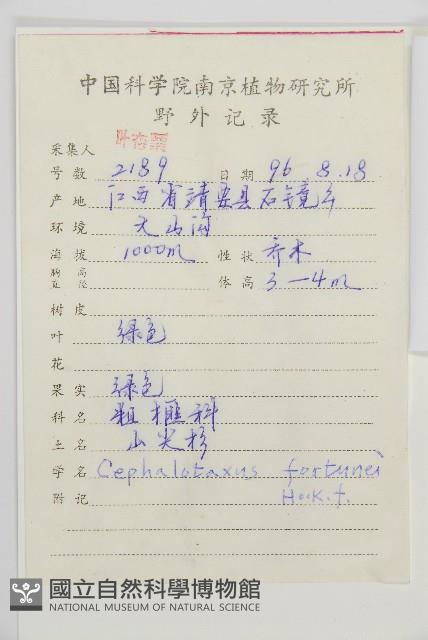 中国科学院南京植物研究所
野外记录
采集人 叶存粟
号数 2189 日期 96 8.18
产地 江西省靖安县石镜乡
环境
海拔 1000m 性状 乔木
胸高直径 体高 3—4m
树皮
叶 绿色
花
果实 绿色
科名 粗榧科
土名 山尖杉
学名 Cephalotaxus fortunei
附记 Hook.f.
國立自然科學博物館
NATIONAL MUSEUM OF NATURAL SCIENCE